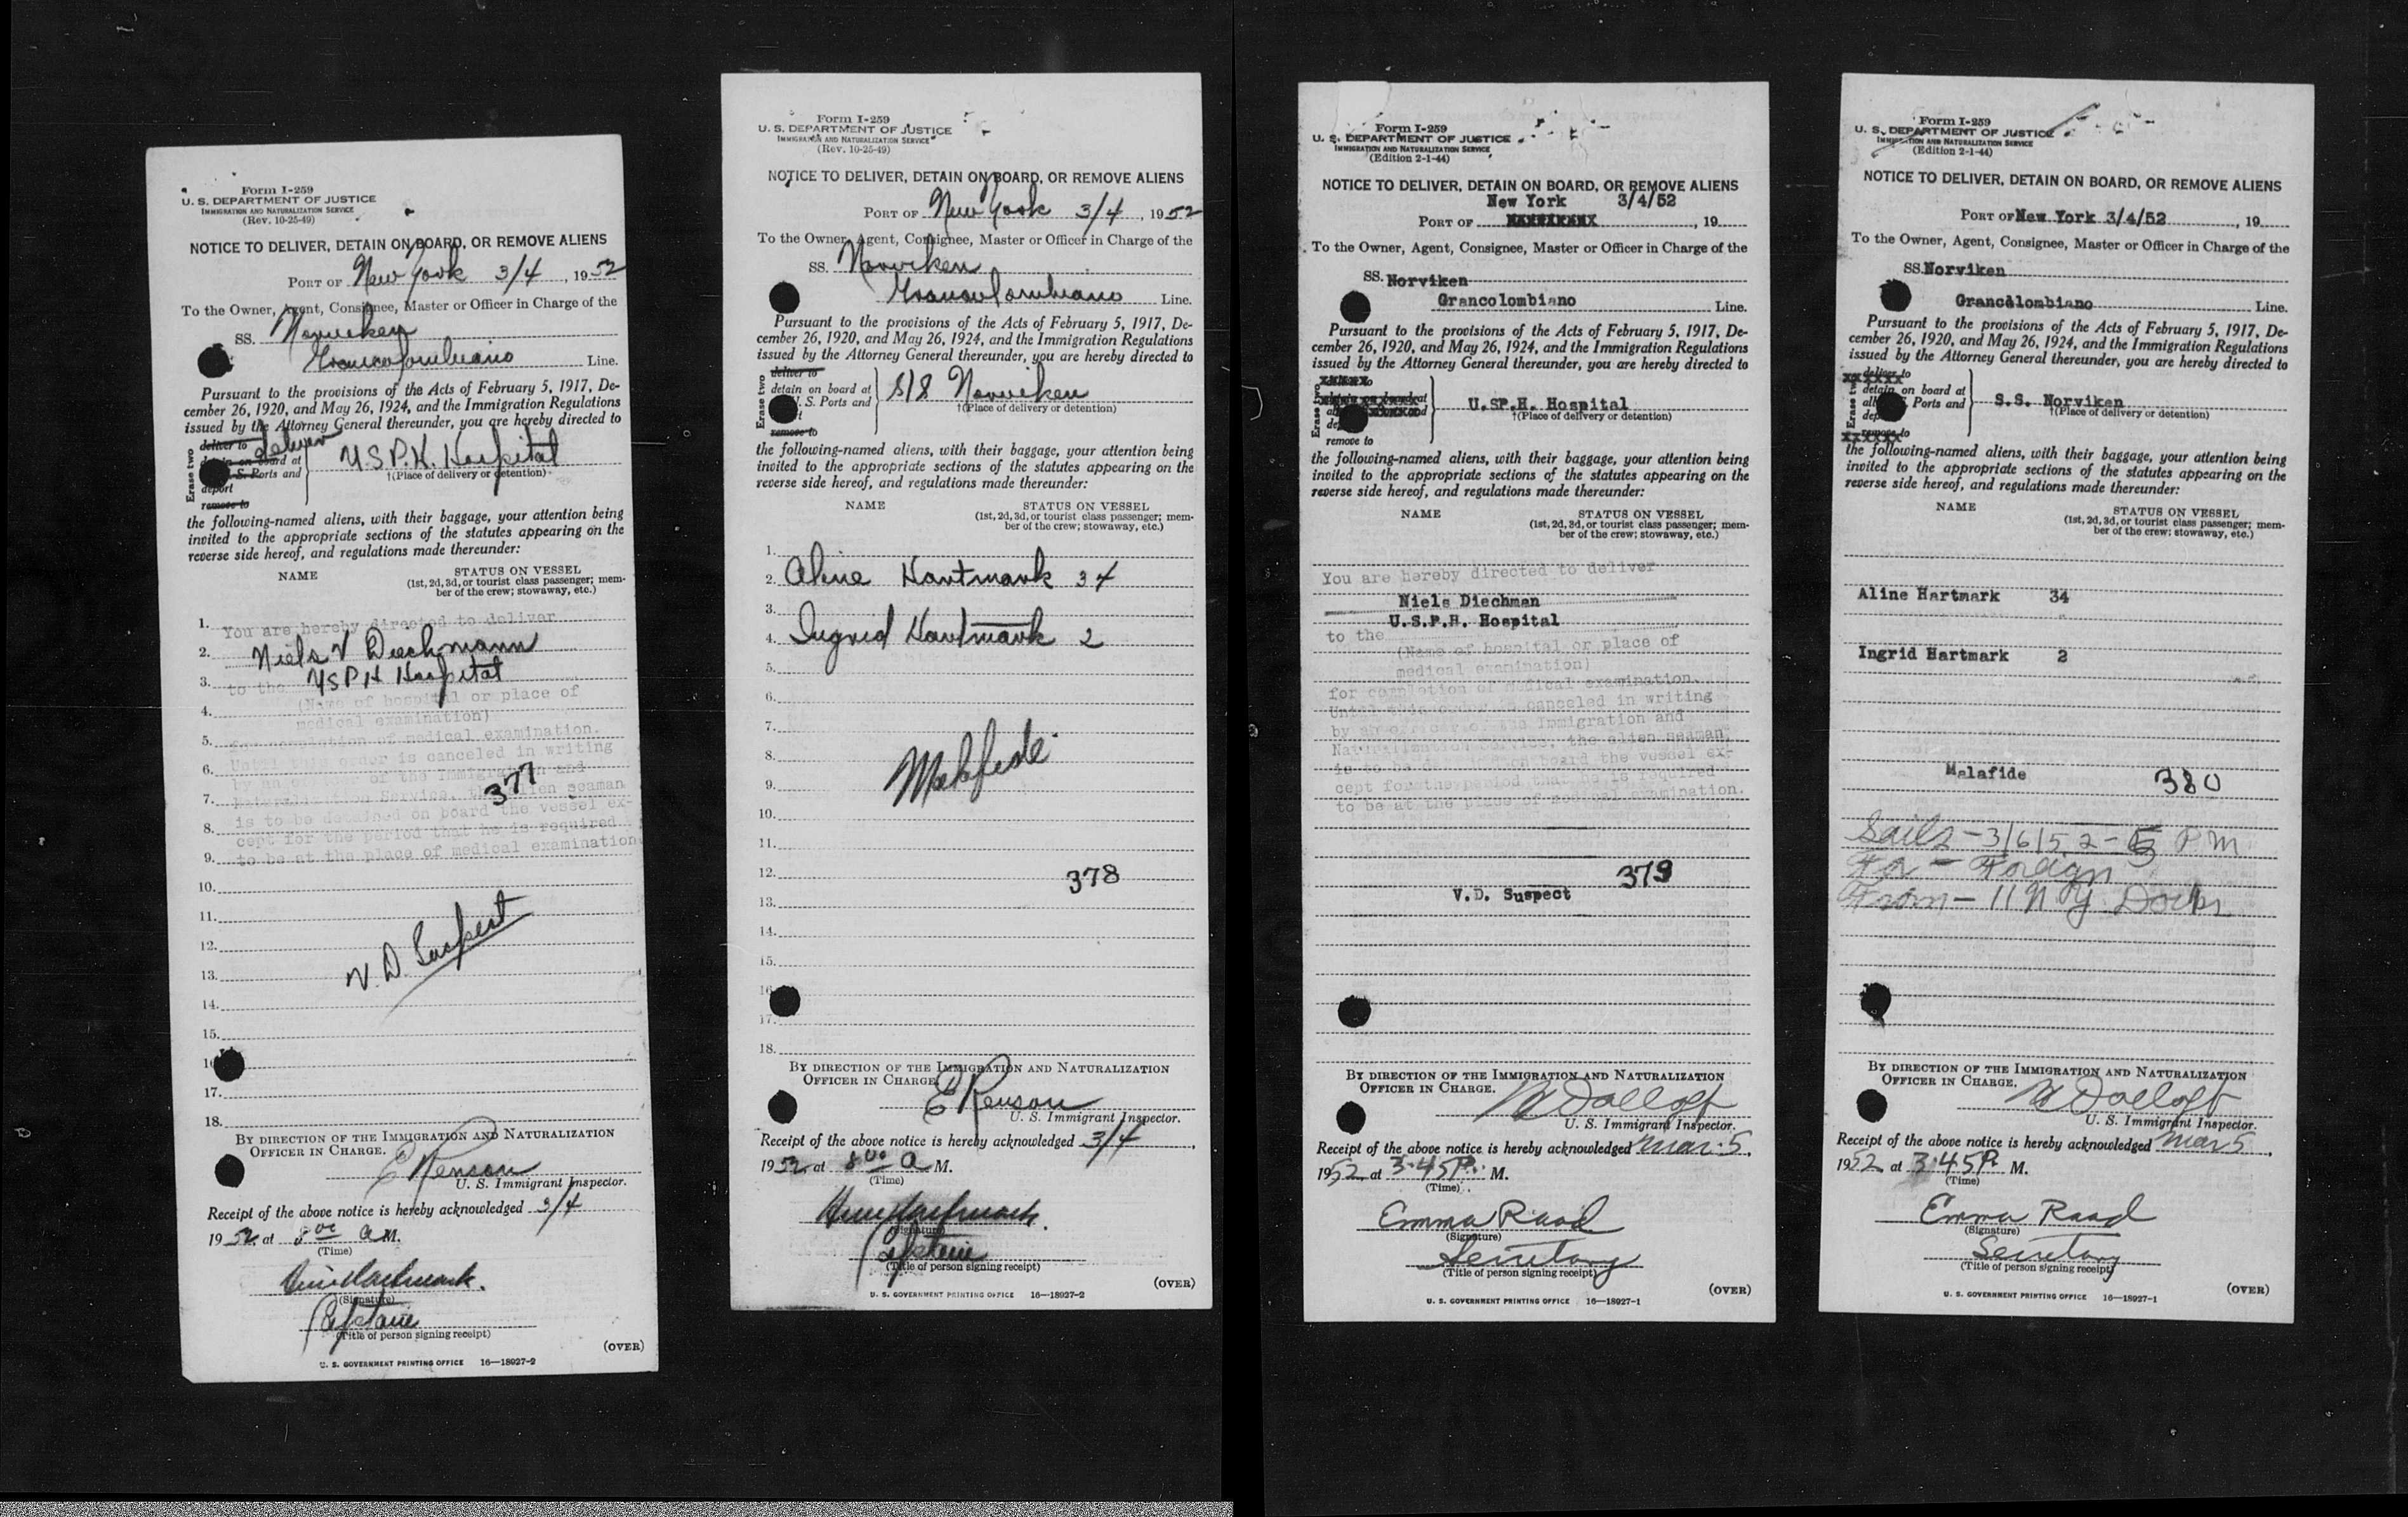 Form I-259
U. S. DEPARTMENT OF JUSTICE
IMMIGRATION AND NATURALIZATION SERVICE
(Rev. 10-25-49)
NOTICE TO DELIVER, DETAIN ON BOARD, OR REMOVE ALIENS
PORT OF New York 3/4, 1952
To the Owner, Agent, Consignee, Master or Officer in Charge of the
SS. Norviken
Grancolombiano Line.
Pursuant to the provisions of the Acts of February 5, 1917, De-
cember 26, 1920, and May 26, 1924, and the Immigration Regulations
issued by the Attorney General thereunder, you are hereby directed to
Erase two
deliver to deliver
detain on board at
U. S. Ports and
deport
remove to
U.S.P.H. Hospital
†(Place of delivery or detention)
the following-named aliens, with their baggage, your attention being
invited to the appropriate sections of the statutes appearing on the
reverse side hereof, and regulations made thereunder:
NAME STATUS ON VESSEL
(1st, 2d, 3d, or tourist class passenger; mem-
ber of the crew; stowaway, etc.)
1. You are hereby directed to deliver
2. Niels V Diechmann
3. to the USPH Hospital
4. (Name of hospital or place of
medical examination)
5. for completion of medical examination.
Until this order is canceled in writing
6. by an officer of the Immigration and
7. Naturalization Service, the alien seaman
377
is to be detained on board the vessel ex-
8. cept for the period that he is required
9. to be at the place of medical examination
10.
11.
12.
13. V.D. Suspect
14.
15.
16
17.
18.
BY DIRECTION OF THE IMMIGRATION AND NATURALIZATION
OFFICER IN CHARGE.
E Renson
U. S. Immigrant Inspector.
Receipt of the above notice is hereby acknowledged 3/4
1952 at 8 00 A M.
(Time)
Hartmark.
(Signature)
Captain
(Title of person signing receipt)
(OVER)
U. S. GOVERNMENT PRINTING OFFICE 16—18927-2
Form I-259
U. S. DEPARTMENT OF JUSTICE
IMMIGRATION AND NATURALIZATION SERVICE
(Rev. 10-25-49)
NOTICE TO DELIVER, DETAIN ON BOARD, OR REMOVE ALIENS
PORT OF New York 3/4, 1952
To the Owner, Agent, Consignee, Master or Officer in Charge of the
SS. Norviken
Grancolombiano Line.
Pursuant to the provisions of the Acts of February 5, 1917, De-
cember 26, 1920, and May 26, 1924, and the Immigration Regulations
issued by the Attorney General thereunder, you are hereby directed to
Erase two
deliver to
detain on board at
U. S. Ports and
remove to
S/S Norviken
†(Place of delivery or detention)
the following-named aliens, with their baggage, your attention being
invited to the appropriate sections of the statutes appearing on the
reverse side hereof, and regulations made thereunder:
NAME STATUS ON VESSEL
(1st, 2d, 3d, or tourist class passenger; mem-
ber of the crew; stowaway, etc.)
1.
2. Aline Hartmark 34
3.
4. Ingrid Hartmark 2
5.
6.
7.
8. Malafide
9.
10.
11.
12. 378
13.
14.
15.
16
17.
18.
BY DIRECTION OF THE IMMIGRATION AND NATURALIZATION
OFFICER IN CHARGE
E Renson
U. S. Immigrant Inspector.
Receipt of the above notice is hereby acknowledged 3/4,
1952 at 8 00 A M.
(Time)
Hartmark.
(Signature)
Captain
(Title of person signing receipt)
(OVER)
U. S. GOVERNMENT PRINTING OFFICE 16—18927-2
Form I-259
U. S. DEPARTMENT OF JUSTICE
IMMIGRATION AND NATURALIZATION SERVICE
(Edition 2-1-44)
NOTICE TO DELIVER, DETAIN ON BOARD, OR REMOVE ALIENS
New York 3/4/52
PORT OF XXXXXXXXX, 19
To the Owner, Agent, Consignee, Master or Officer in Charge of the
SS. Norviken
Grancolombiano Line.
Pursuant to the provisions of the Acts of February 5, 1917, De-
cember 26, 1920, and May 26, 1924, and the Immigration Regulations
issued by the Attorney General thereunder, you are hereby directed to
Erase two
remove to
U.SP.H. Hospital
†(Place of delivery or detention)
the following-named aliens, with their baggage, your attention being
invited to the appropriate sections of the statutes appearing on the
reverse side hereof, and regulations made thereunder:
NAME STATUS ON VESSEL
(1st, 2d, 3d, or tourist class passenger; mem-
ber of the crew; stowaway, etc.)
You are hereby directed to deliver
Niels Diechman
U.S.P.H. Hospital
to the
(Name of hospital or place of
medical examination)
for completion of medical examination.
Until this order is canceled in writing
by an officer of the Immigration and
Naturalization Service, the alien seaman
is to be detained on board the vessel ex-
cept for the period that he is required
to be at the place of medical examination.
379
V.D. Suspect
BY DIRECTION OF THE IMMIGRATION AND NATURALIZATION
OFFICER IN CHARGE.
U. S. Immigrant Inspector.
Receipt of the above notice is hereby acknowledged Mar. 5,
1952 at 3:45 P. M.
(Time)
Emma Raad
(Signature)
Secretary
(Title of person signing receipt)
(OVER)
U. S. GOVERNMENT PRINTING OFFICE 16—18927-1
Form I-259
U. S. DEPARTMENT OF JUSTICE
IMMIGRATION AND NATURALIZATION SERVICE
(Edition 2-1-44)
NOTICE TO DELIVER, DETAIN ON BOARD, OR REMOVE ALIENS
PORT OF New York 3/4/52, 19
To the Owner, Agent, Consignee, Master or Officer in Charge of the
SS. Norviken
Grancolombiano Line.
Pursuant to the provisions of the Acts of February 5, 1917, De-
cember 26, 1920, and May 26, 1924, and the Immigration Regulations
issued by the Attorney General thereunder, you are hereby directed to
Erase two
deliver to
detain on board at
all U. S. Ports and
remove to
S.S. Norviken
†(Place of delivery or detention)
the following-named aliens, with their baggage, your attention being
invited to the appropriate sections of the statutes appearing on the
reverse side hereof, and regulations made thereunder:
NAME STATUS ON VESSEL
(1st, 2d, 3d, or tourist class passenger; mem-
ber of the crew; stowaway, etc.)
Aline Hartmark 34
Ingrid Hartmark 2
Malafide 380
Sails - 3/6/52 - 5 PM
For - Foreign
From - 11 N.Y. Docks
BY DIRECTION OF THE IMMIGRATION AND NATURALIZATION
OFFICER IN CHARGE.
U. S. Immigrant Inspector.
Receipt of the above notice is hereby acknowledged Mar 5,
1952 at 3:45 P. M.
(Time)
Emma Raad
(Signature)
Secretary
(Title of person signing receipt)
(OVER)
U. S. GOVERNMENT PRINTING OFFICE 16—18927-1